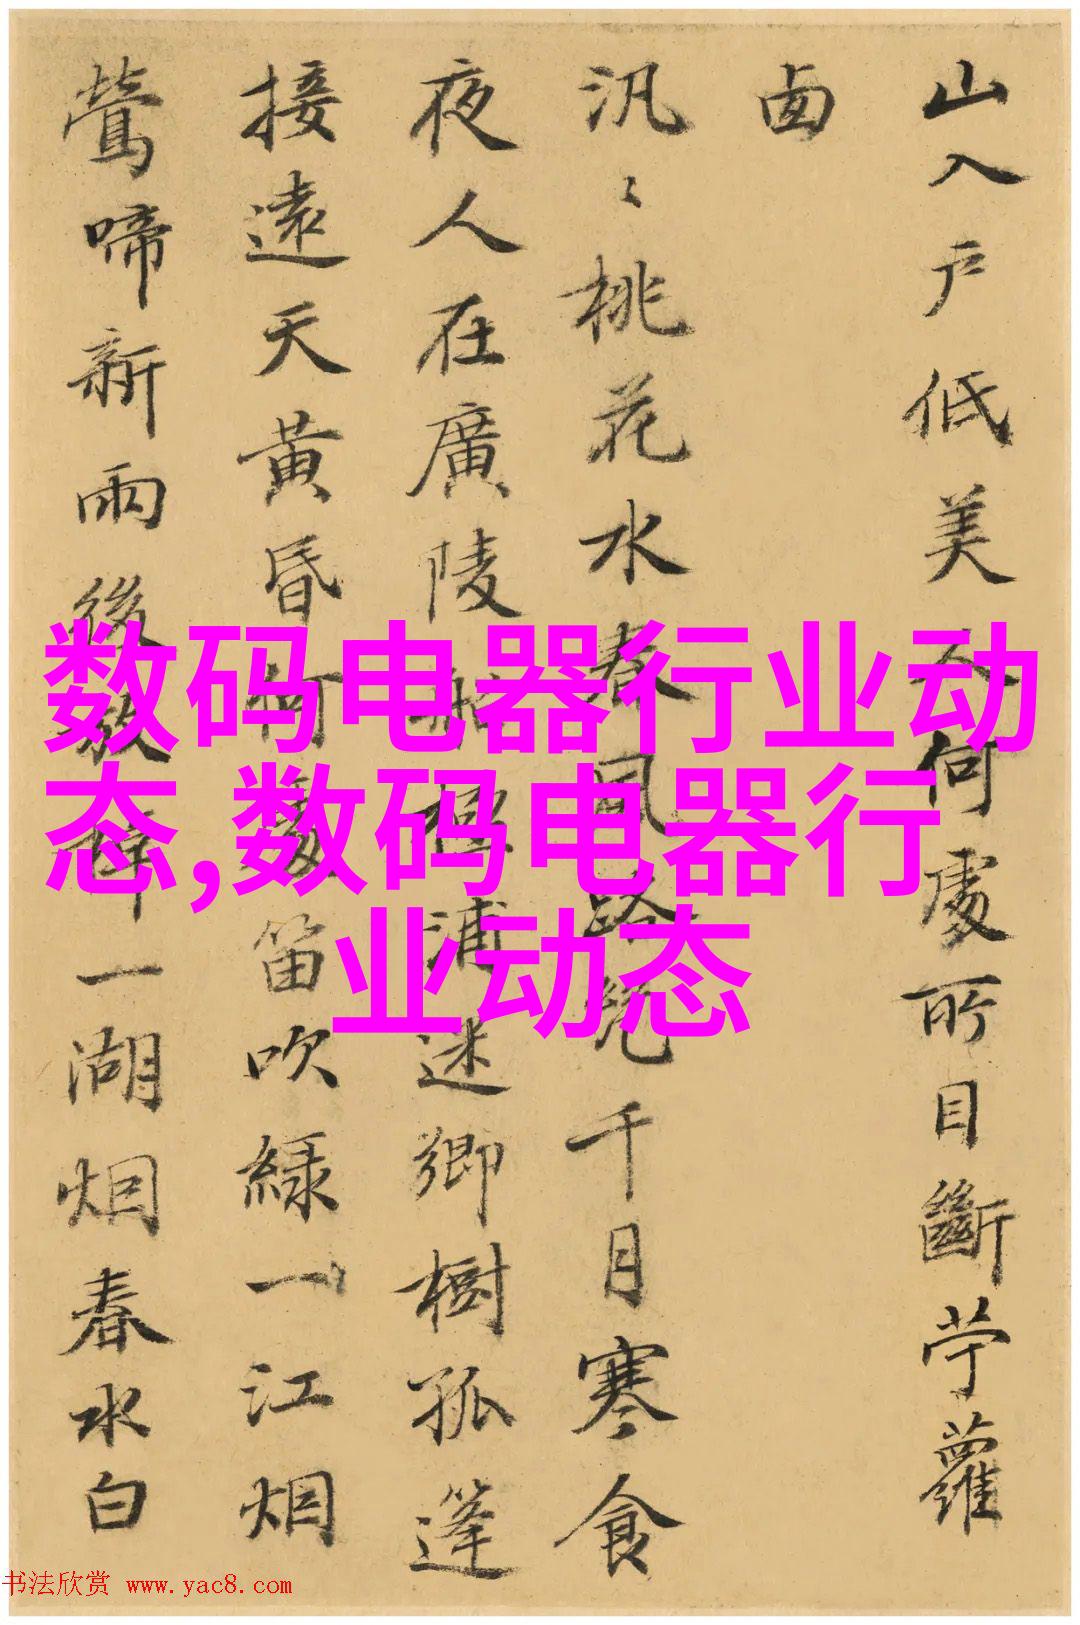 山入戶低美人何處所目斷苧蘿
西
汎〻桃花水春風路繞千月寒食
夜人在廣陵船極浦迷鄉樹孤篷
接遠天黃昏何處笛吹綠一江烟
鶯啼新雨後放棹一湖烟春水白
数码电器行业动
态,数码电器行
业动态
书法欣赏 www.yac8.com